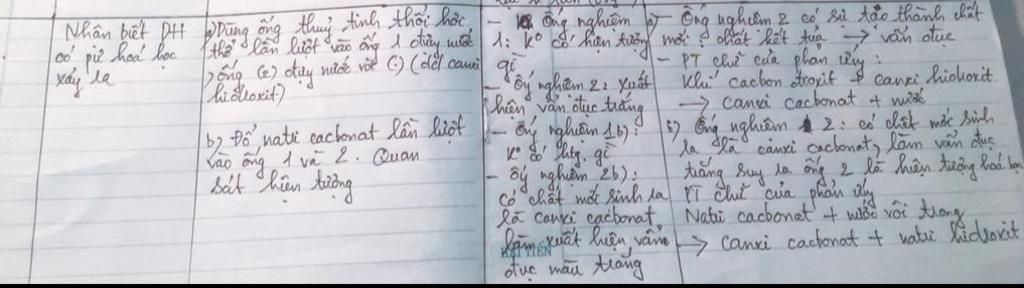 Nhân biết DH
có pứ hoá học
xảy ra
a) Dùng ống thuỷ tinh thổi hơi
thở lần lượt vào ống 1 đựng nước
, ống (2) đựng nước vôi (dd canxi
hiđroxit)
b) Đổ natri cacbonat lần lượt
vào ống 1 và 2. Quan
sát hiện tượng
- Ống nghiệm
1: K° có hiện tượng
gì
- Ống nghiệm 2: xuất
hiện vẩn đục trắng
- Ống nghiệm 1b):
K° có htg. gì
- Ống nghiệm 2b):
có chất mới sinh ra
là canxi cacbonat
làm xuất hiện vẩn
đục màu trắng
HẢI TIẾN
a) - Ống nghiệm 2 có sự tạo thành chất
mới: chất kết tủa → vẩn đục
- PT chữ của phản ứng:
Khí cacbon đioxit + canxi hiđroxit
→ canxi cacbonat + nước
b) Ống nghiệm 2: có chất mới sinh
ra là canxi cacbonat, làm vẩn đục
trắng suy ra ống 2 là hiện tượng hoá học
PT chữ của phản ứng
Natri cacbonat + nước vôi trong
→ canxi cacbonat + natri hiđroxit